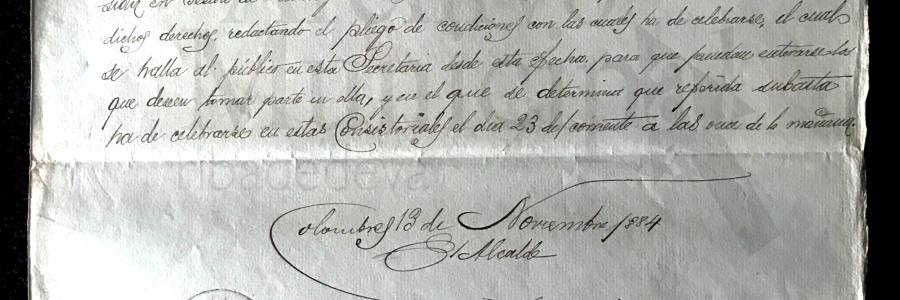 dichos derechos, redactando el pliego de condiciones con las cuales ha de celebrarse, el cual
se halla al público en esta Secretaria desde esta fecha, para que puedan enterarse los
que deseen tomar parte en ella, y en el que se determina que referida subasta
ha de celebrarse en estas Consistoriales el dia 23 del corriente a las once de la mañana.
Colombres 13 de Noviembre 1884
El Alcalde